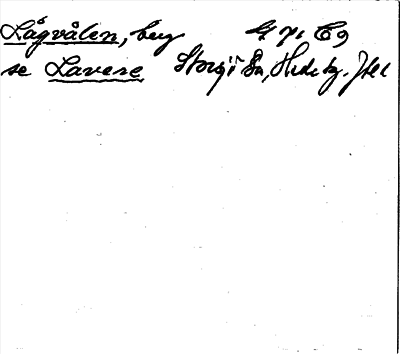 Lågvålen, berg G 7c C9
se Lavere Storsjö Sn, Hede tg. Jtl.